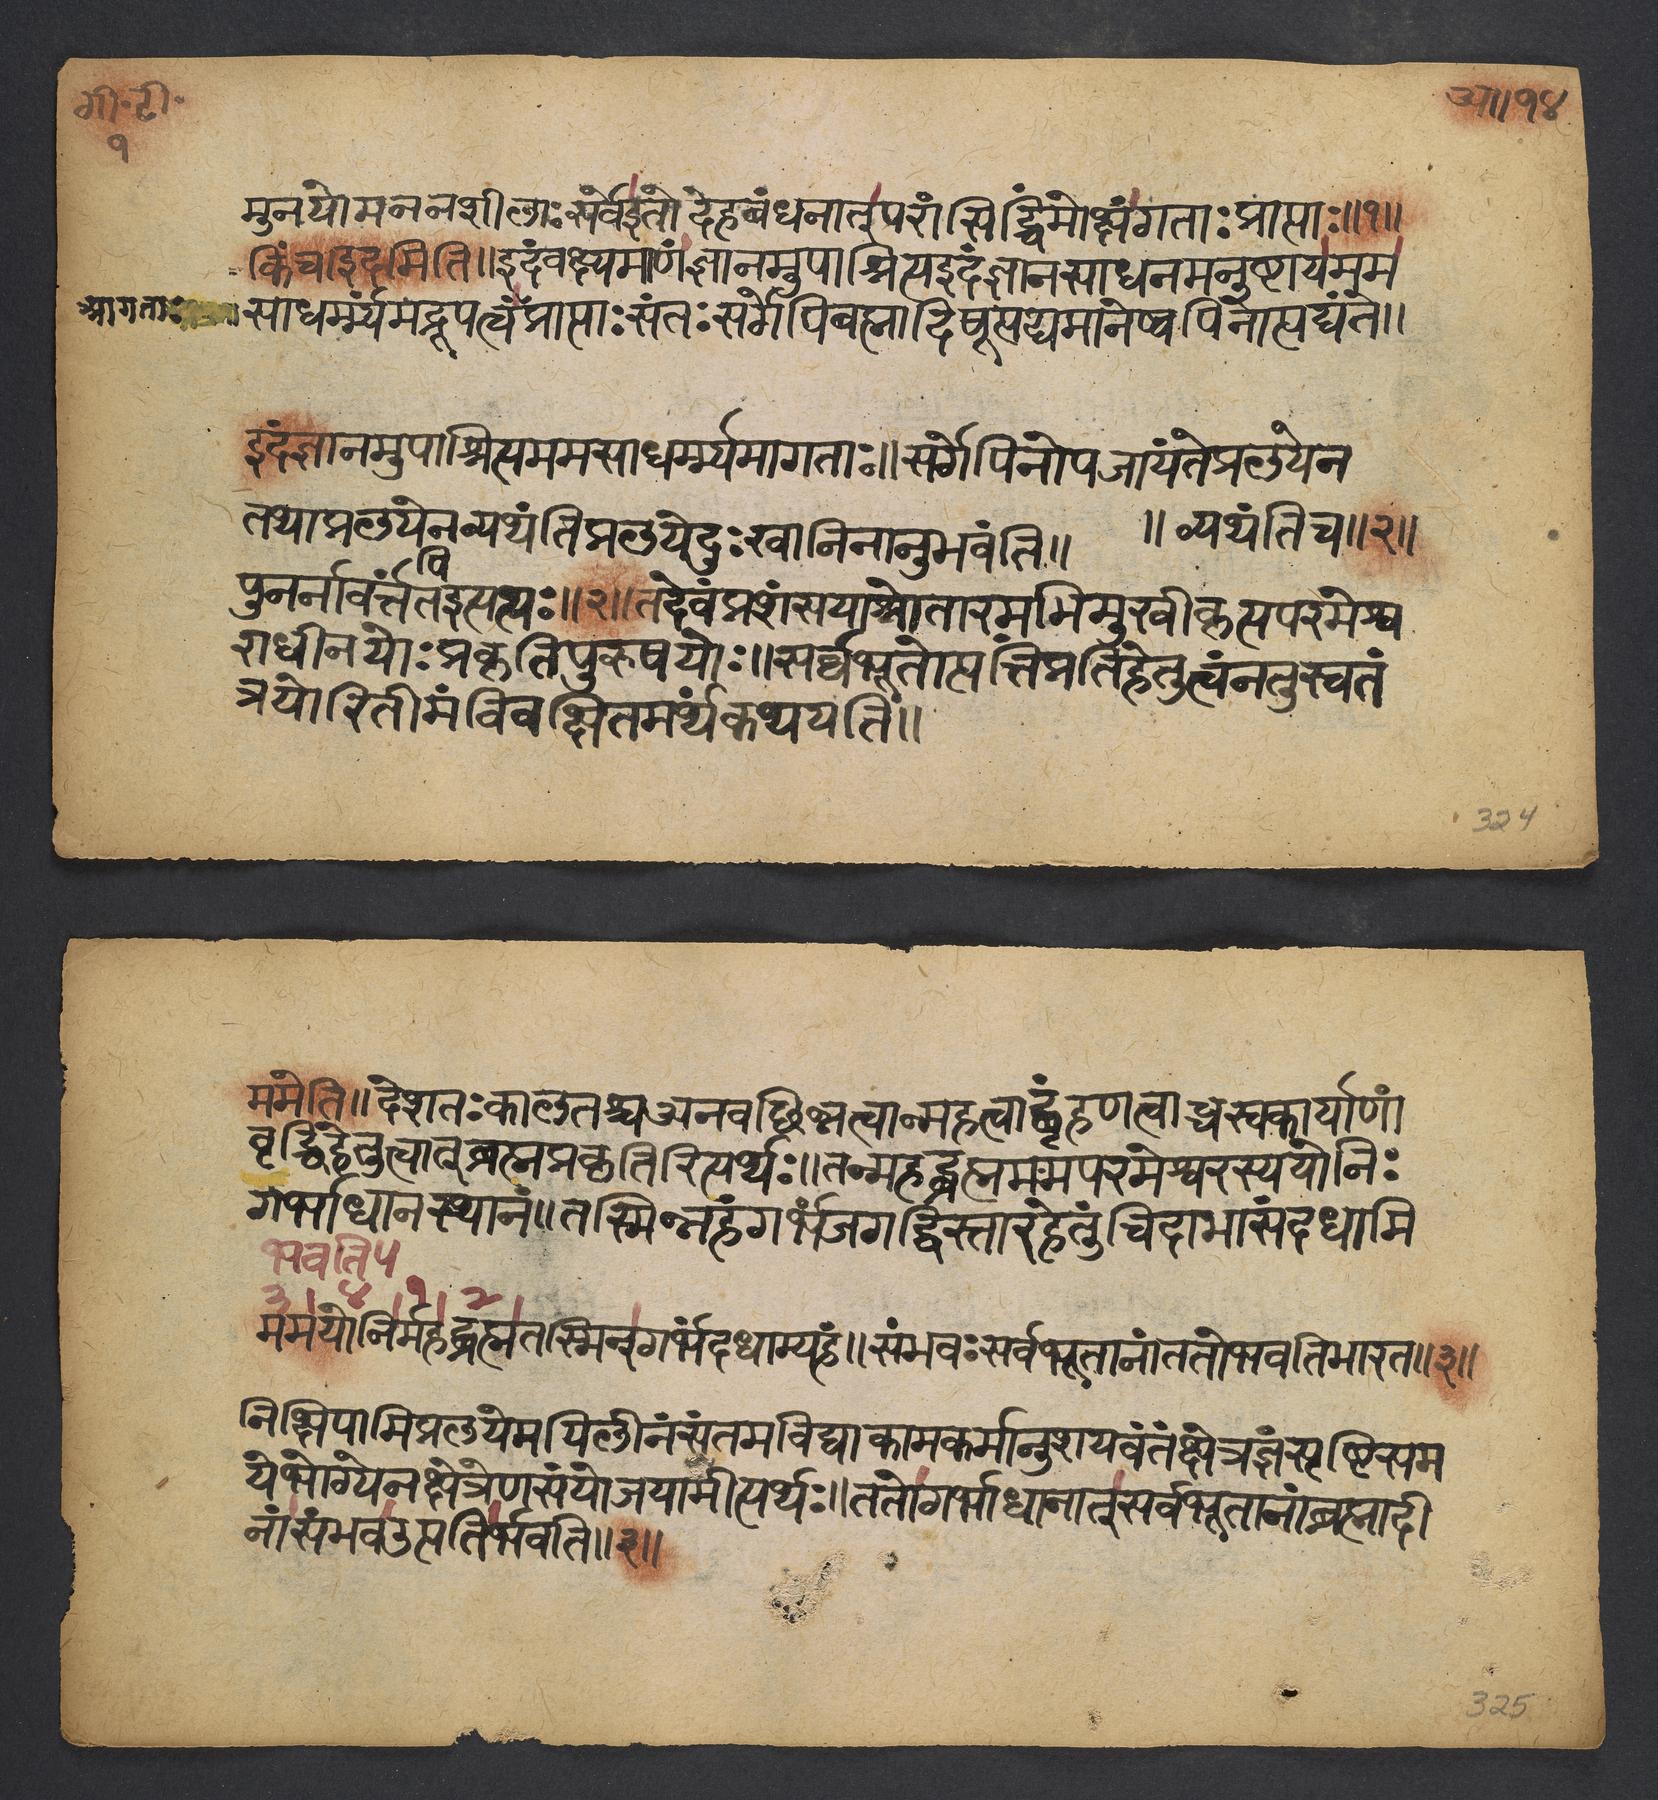 गी॰टी॰
१
अ॥१४
मुनयोमननशीलाःसर्वेइतोदेहबंधनात्परांसिद्धिंमोक्षंगताःप्राप्ताः॥१॥
किंचाइदमिति॥इदंवक्ष्यमाणंज्ञानमुपाश्रित्यइदंज्ञानसाधनमनुष्टायमम
आगताः
साधर्म्म्यमद्रूपत्वंप्राप्ताःसंतःसर्गेपिब्रह्मादिषूत्पद्यमानेष्वपिनोत्पद्यंते॥
इदंज्ञानमुपाश्रित्यममसाधर्म्म्यमागताः॥सर्गेपिनोपजायंतेप्रलयेन
तथाप्रलयेनव्यथंतिप्रलयेदुःखानिनानुभवंति॥
॥व्यथंतिच॥२॥
पुनर्नावर्त्ततइत्यत्थः॥२॥तदेवंप्रशंसयाश्रोतारमभिमुखीकृत्यपरमेश्व
राधीनयोःप्रकृतिपुरुषयोः॥सर्व्वभूतोत्पत्तिंप्रतिहेतुत्वंनतुस्वतं
त्रयोरितीमंविवक्षितमर्थंकथयति॥
324
ममेति॥देशतःकालतश्चअनवछिन्नत्वान्महत्वाद्बृंहणत्वाच्चस्वकार्याणां
वृद्धिहेतुत्वात्ब्रह्मप्रकृतिरित्यर्थः॥तन्महद्ब्रह्मममपरमेश्वरस्ययोनिः
गर्भाधानस्थानं॥तस्मिन्नहंगर्भंजगद्विस्तारहेतुंचिदाभासंदधामि
भवति५
३ ४ १ २
ममयोनिर्महद्ब्रह्मतस्मिन्गर्भंदधाम्यहं॥संभवःसर्वभूतानांततोभवतिभारत॥३॥
निक्षिपामिप्रलयेमयिलीनंसंतमविद्याकामकर्मानुशयवंतंक्षेत्रज्ञंसृष्टिसम
येभोग्येनक्षेत्रेणसंयोजयामीत्यर्थः॥ततोगर्भाधानात्सर्वभूतानांब्रह्मादी
नांसंभवउत्पतिर्भवति॥३॥
325